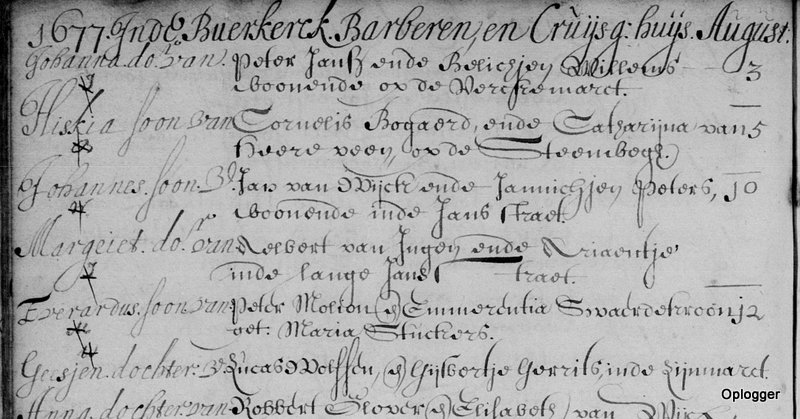 1677. Inde Buerkerck. Barberen, en Cruÿsg: huÿs. August:
Johanna. dor. van Peter Jansz ende Belichjen Willems 3
woonende op de Verckemarct.
Hiskia soon van Cornelis Bogaerd, ende Catharijna van 5
Heere veen, op de Steenbogh.
Johannes. soon. v. Jan van Wijck ende Jannichjen Peters, 10
woonende inde Jans straet.
Margriet. dor. van Aelbert van Ingen ende Ariaentje
inde lange Jans straet.
Everardus. soon van Peter Molion, & Emmerentia Swaerdekroon 12
get: Maria Stuckers.
Geesjen. dochter. v. Lucas Wolffsen, & Gijsbertje Gerrits, inde Lijnmarct.
Anna. dochter. van Robbert Glover & Elisabeth van
Oplogger